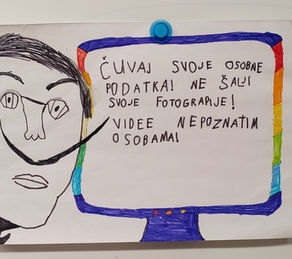 ČUVAJ SVOJE OSOBNE
PODATKA! NE ŠALJI
SVOJE FOTOGRAFIJE!
VIDEE NEPOZNATIM
OSOBAMA!